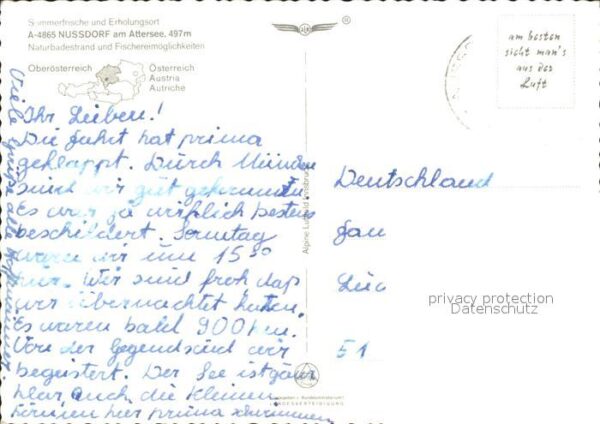 Sommerfrische und Erholungsort
A-4865 NUSSDORF am Attersee, 497m
Naturbadestrand und Fischereimöglichkeiten
Oberösterreich
Österreich
Austria
Autriche
am besten
sieht man's
aus der
Luft
Ihr Lieben!
Die Fahrt hat prima
geklappt. Durch München
sind wir gut gekommen.
Es war ja wirklich bestens
beschildert. Sonntag
waren wir um 15 30
hier. Wir sind froh daß
wir übernachtet haben.
Es waren bald 900 km.
Von der Gegend sind wir
begeistert. Der See ist ganz
klar, auch die Kleinen
können hier prima schwimmen
Viele Grüße
Alpine Luftbild Innsbruck
Deutschland
Fam
51
privacy protection
Datenschutz
LANDESVERTEIDIGUNG